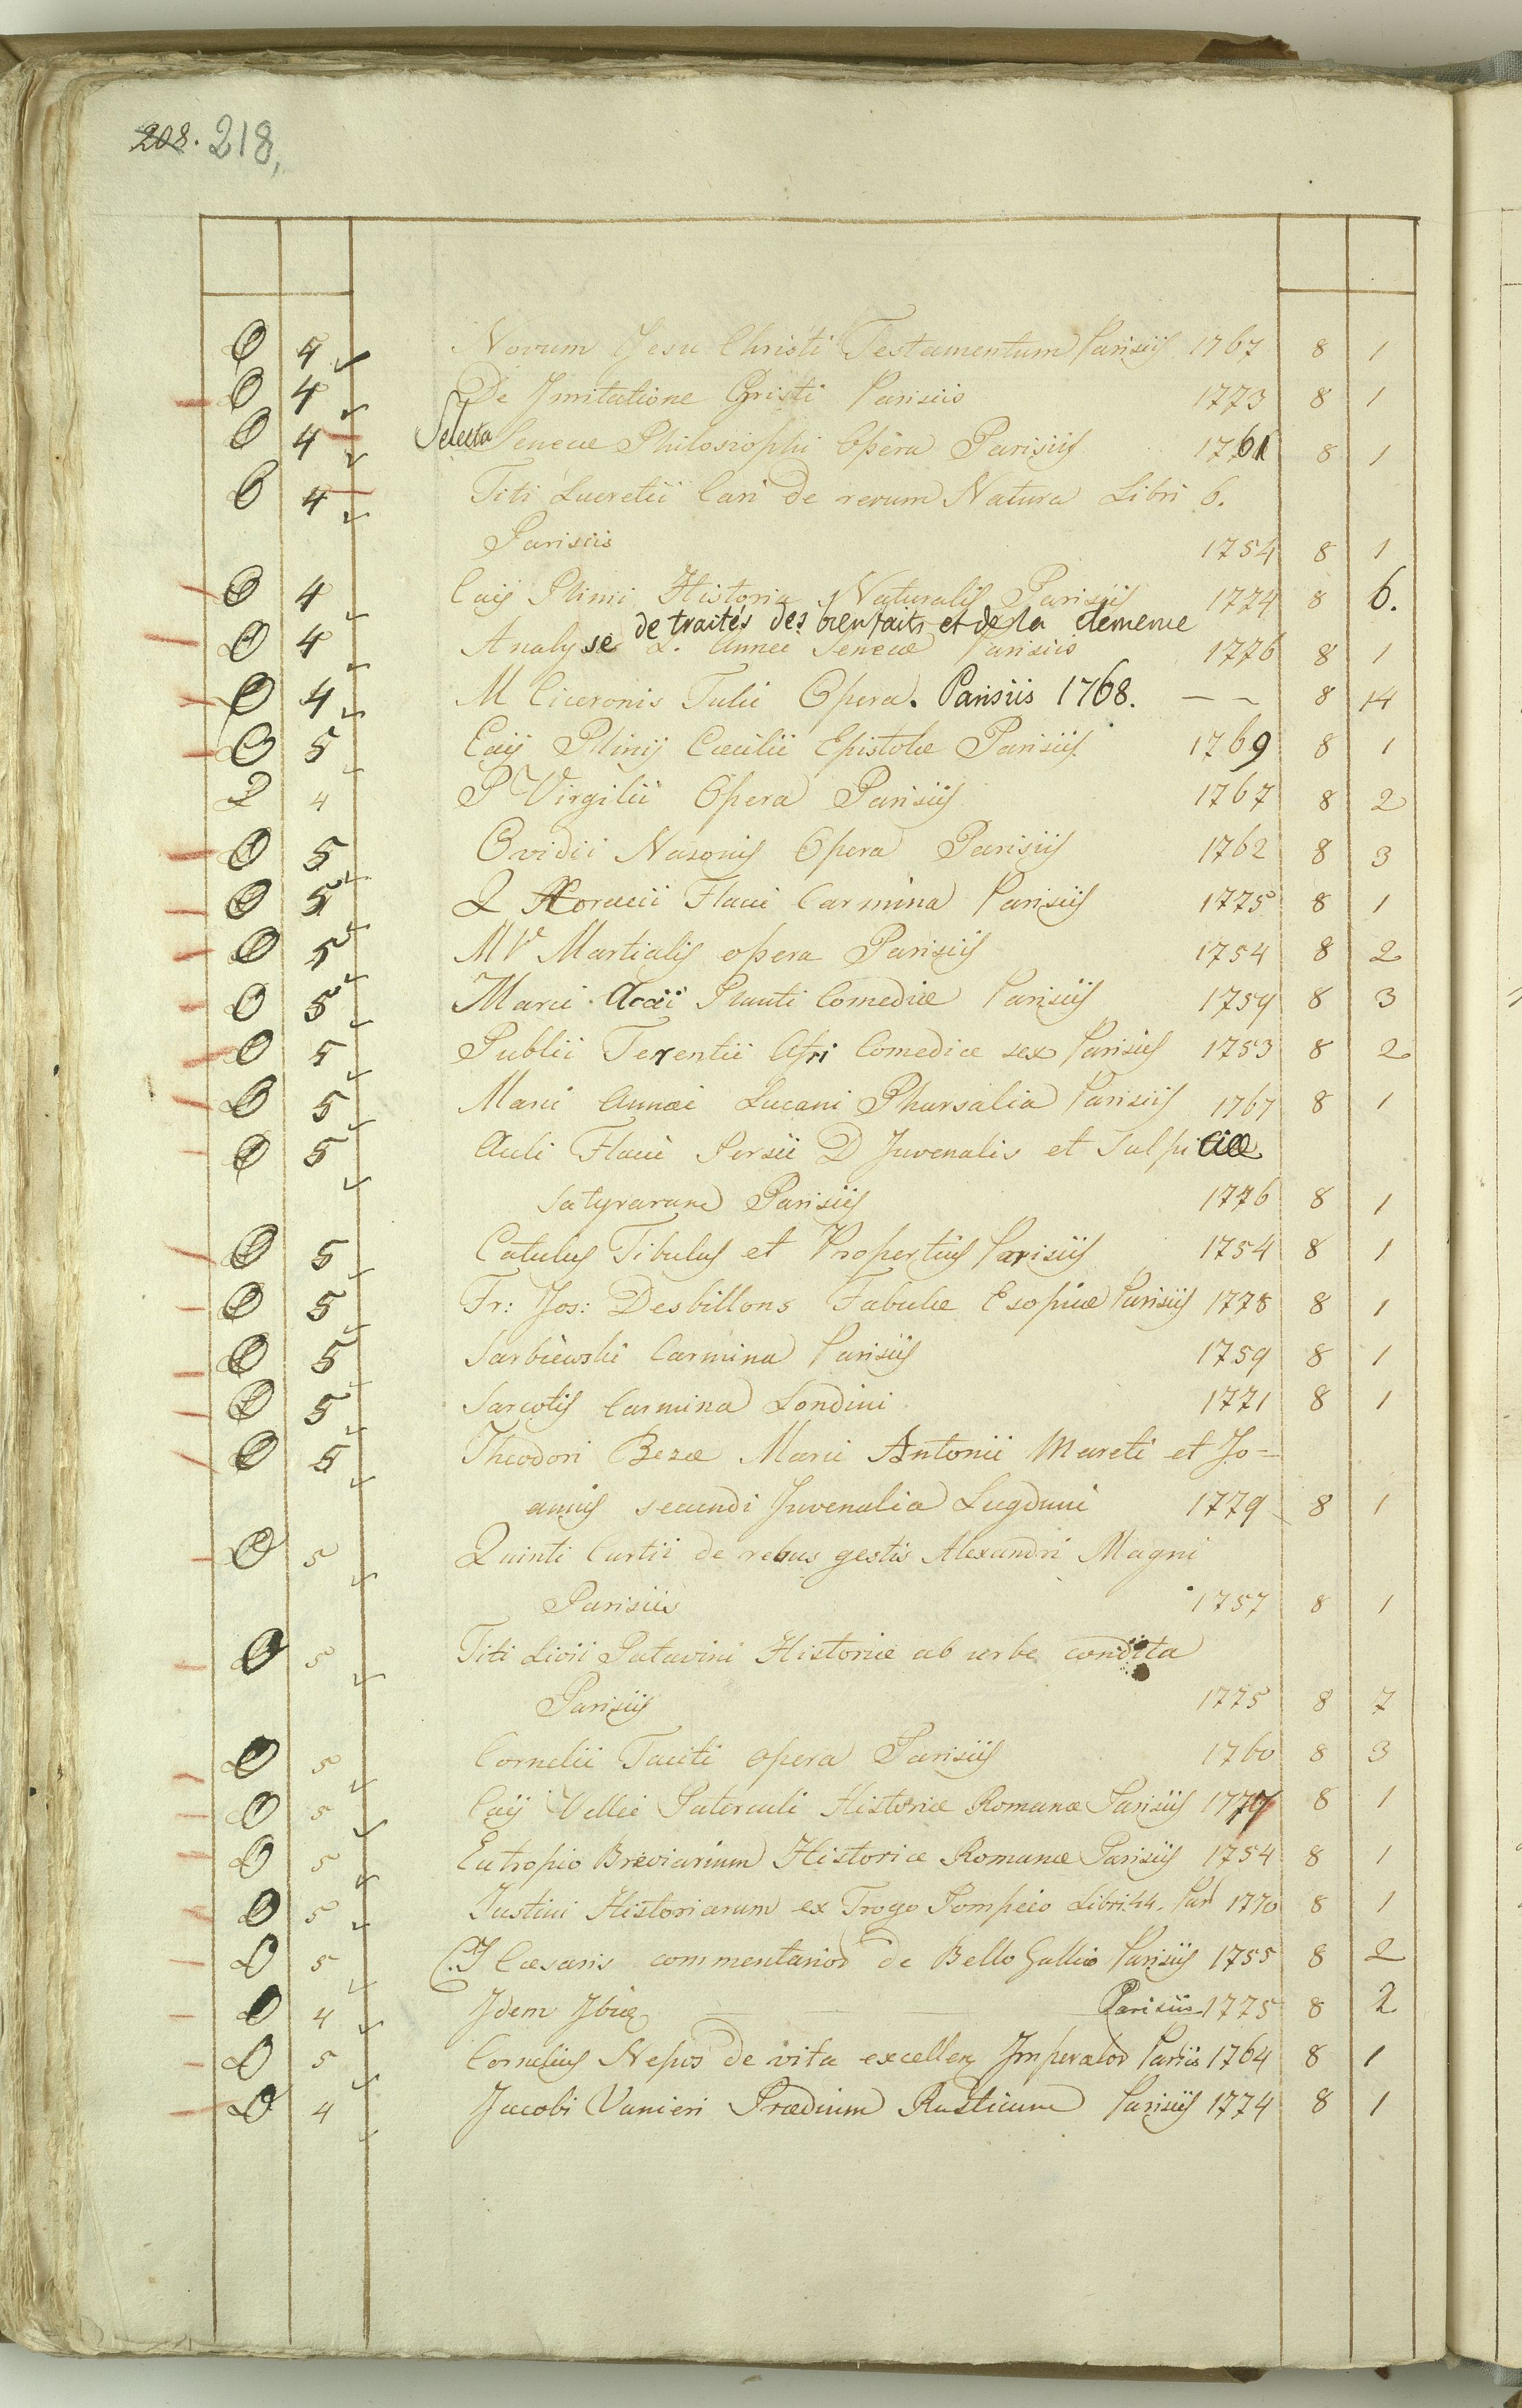 208. 218,
O 4 Novum Jesu Christi Testamentum Parisiis 1767 8 1
O 4 De Imitatione Christi Parisiis 1773 8 1
O 4 Selecta Senecae Philosophi Opera Parisiis 1761 8 1
O 4 Titi Lucretii Cari De rerum Natura Libri 6.
Parisiis 1754 8 1
O 4 Caij Plinii Historia Naturalis Parisiis 1774 8 6.
de traités des bienfaits et de la clemence
O 4 Analyse L. Annei Senecae Parisiis 1776 8 1
O 4 M Ciceronis Tulii Opera. Parisiis 1768. — — 8 14
O 5 Caij Plinij Cæcilii Epistolæ Parisiis 1769 8 1
2 4 P Virgilii Opera Parisiis 1767 8 2
O 5 Ovidii Nasonis Opera Parisiis 1762 8 3
O 5 Q Horacii Flacci Carmina Parisiis 1775 8 1
O 5 M V Martialis opera Parisiis 1754 8 2
O 5 Marci Accii Plauti Comediæ Parisiis 1759 8 3
O 5 Publii Terentii Afri Comediæ sex Parisiis 1753 8 2
O 5 Marci Annæi Lucani Pharsalia Parisiis 1767 8 1
O 5 Auli Flacci Persii D Juvenalis et Sulpiciæ
Satyrarum Parisiis 1776 8 1
O 5 Catulus Tibulus et Propertius Parisiis 1754 8 1
O 5 Fr: Jos: Desbillons Fabulæ Esopiæ Parisiis 1778 8 1
O 5 Sarbiewski Carmina Parisiis 1759 8 1
O 5 Sarcotis Carmina Londini 1771 8 1
O 5 Theodori Bezæ Marci Antonii Mureti et Jo-
annis secundi Juvenalia Lugduni 1779 8 1
O 5 Quinti Curtii de rebus gestis Alexandri Magni
Parisiis 1757 8 1
O 5 Titi Livii Patavini Historiæ ab urbe condita
Parisiis 1775 8 7
O 5 Cornelii Taciti opera Parisiis 1760 8 3
O 5 Caij Vellei Paterculi Historiæ Romanæ Parisiis 1777 8 1
O 5 Eutropio Breviarium Historiæ Romanæ Parisiis 1754 8 1
O 5 Justini Historiarum ex Trogo Pompeio Libri 44. Par 1770 8 1
O 5 C. J Cæsaris commentarior de Bello Gallico Parisiis 1755 8 2
O 4 Idem — — Parisiis 1775 8 2
O 5 Cornelius Nepos De vita excellen Imperator Pariis 1764 8 1
O 4 Jacobi Vanieri Prædium Rusticum Parisiis 1774 8 1